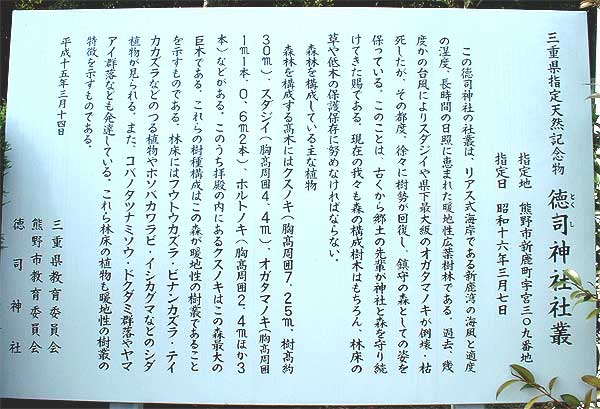 三重県指定天然記念物 徳司神社社叢
とくし
指定地 熊野市新鹿町字宮三〇九番地
指定日 昭和十六年三月七日
この徳司神社の社叢は、リアス式海岸である新鹿湾の海風と適度
の湿度、長時間の日照に恵まれた暖地性広葉樹林である。過去、幾
度かの台風によりスダジイや県下最大級のオガタマノキが倒壊・枯
死したが、その都度、徐々に樹勢が回復し、鎮守の森としての姿を
保っている。このことは、古くから郷土の先輩が神社と森を守り続
けてきた賜である。現在の我々も森の構成樹木はもちろん、林床の
草や低木の保護保存に努めなければならない。
森林を構成している主な植物
森林を構成する高木にはクスノキ(胸高周囲7.25m、樹高約
30m)、スダジイ(胸高周囲4.4m)、オガタマノキ(胸高周囲
1m1本、0.6m2本)、ホルトノキ(胸高周囲2.4mほか3
本)などがある。このうち拝殿の内にあるクスノキはこの森最大の
巨木である。これらの樹種構成はこの森が暖地性の樹叢であること
を示すものである。林床にはフウトウカズラ・ビナンカズラ・テイ
カカズラなどのつる植物やホソバカワラビ・イシカグマなどのシダ
植物が見られる。また、コバノタツナミソウ・ドクダミ群落やヤマ
アイ群落なども発達している。これら林床の植物も暖地性の樹叢の
特徴を示すものである。
平成十五年三月十四日
三重県教育委員会
熊野市教育委員会
徳司神社